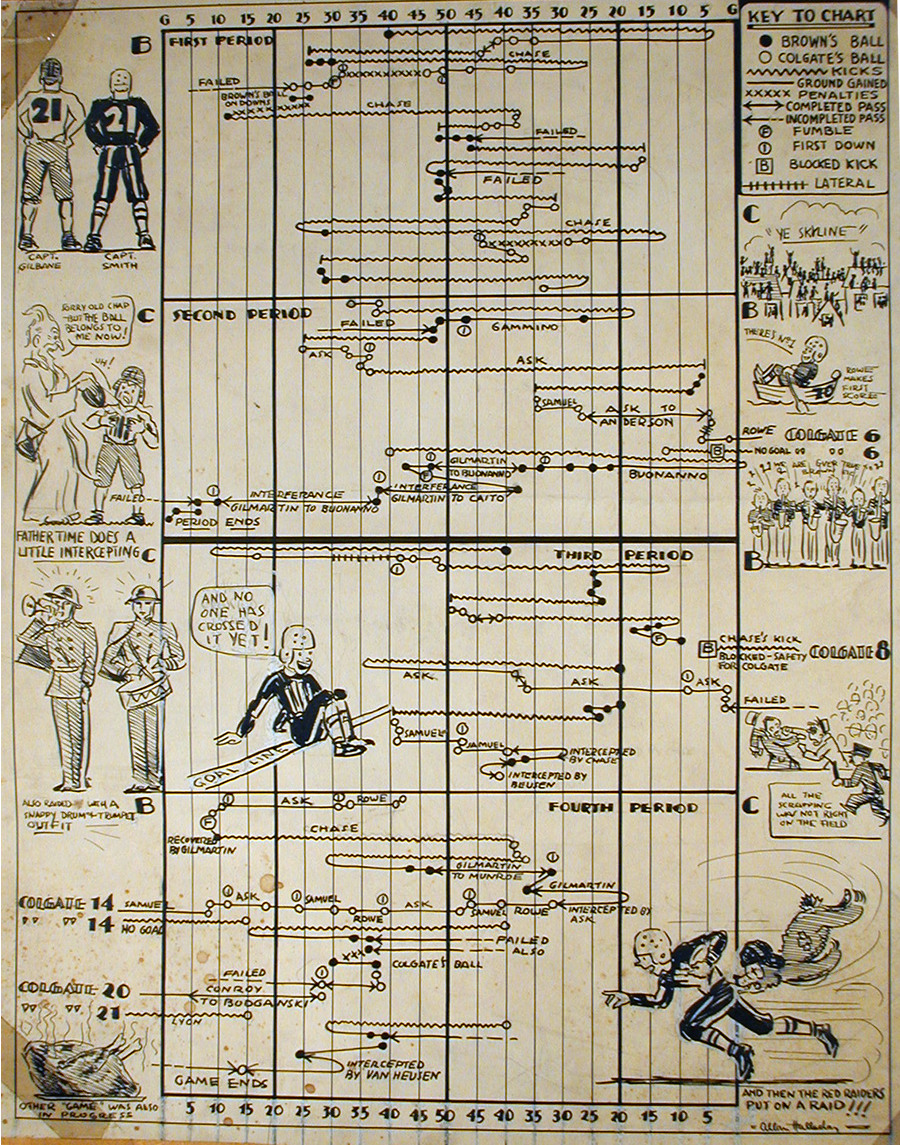 G 5 10 15 20 25 30 35 40 45 50 45 40 35 30 25 20 15 10 5 G
KEY TO CHART
BROWN'S BALL
COLGATE'S BALL
KICKS
GROUND GAINED
XXXXX PENALTIES
COMPLETED PASS
INCOMPLETED PASS
F FUMBLE
1 FIRST DOWN
B BLOCKED KICK
LATERAL
B
FIRST PERIOD
CHASE
FAILED
BROWN'S BALL
ON DOWNS
CHASE
FAILED
FAILED
CHASE
21
21
CAPT.
GILBANE
CAPT.
SMITH
C
"YE SKYLINE"
B
C
SECOND PERIOD
FAILED
GAMMINO
ASK
ASK
SAMUEL
ASK TO
ANDERSON
ROWE COLGATE 6
B NO GOAL 6
GILMARTIN
TO BUONANNO
BUONANNO
INTERFERANCE
GILMARTIN TO CAITO
FAILED
INTERFERANCE
GILMARTIN TO BUONANNO
PERIOD ENDS
SORRY OLD CHAP
BUT THE BALL
BELONGS TO
ME NOW!
UH!
FATHER TIME DOES A
LITTLE INTERCEPTING
THERE'S NO 1
ROWE
MAKES
FIRST
SCORE
WE ARE EVER TRUE TO
BROWN
B
C
THIRD PERIOD
AND NO
ONE HAS
CROSSED
IT YET!
GOAL LINE
F
B CHASE'S KICK
BLOCKED-SAFETY
FOR COLGATE
COLGATE 8
ASK
ASK
ASK
FAILED
SAMUEL
SAMUEL
INTERCEPTED
BY CHASE
INTERCEPTED BY
BEUSEN
ALSO RAIDED WITH A
SNAPPY DRUM & TRUMPET
OUTFIT
ALL THE
SCRAPPING
WAS NOT RIGHT
ON THE FIELD
B
FOURTH PERIOD
C
ASK
ROWE
F
RECOVERED
BY GILMARTIN
CHASE
GILMARTIN
TO MUNROE
GILMARTIN
INTERCEPTED BY
ASK
COLGATE 14
SAMUEL
ASK
SAMUEL
ROWE
ASK
SAMUEL
ROWE
14 NO GOAL
FAILED
ALSO
COLGATE'S BALL
COLGATE 20
FAILED
CONROY
TO BODGANSKI
21
LYON
INTERCEPTED
BY VAN HEUSEN
GAME ENDS
OTHER "GAME" WAS ALSO
IN PROGRESS
AND THEN THE RED RAIDERS
PUT ON A RAID!!!
5 10 15 20 25 30 35 40 45 50 45 40 35 30 25 20 15 10 5